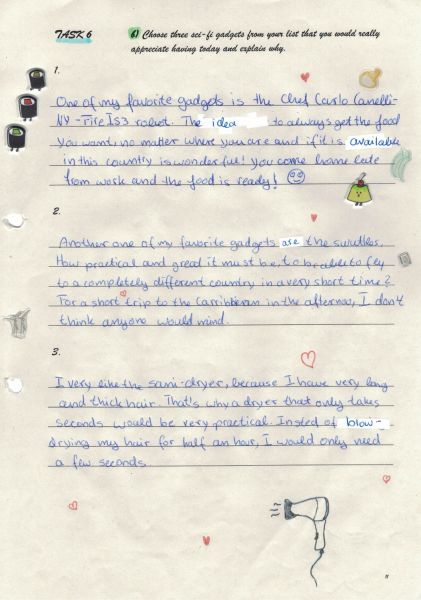 TASK 6
6) Choose three sci-fi gadgets from your list that you would really
appreciate having today and explain why.
1.
One of my favorite gadgets is the Chef Carlo Canelli-
NY-FireIs3 robot. The idea to always get the food
you want, no matter where you are and if it is available
in this country is wonderful! You come home late
from work and the food is ready!
2.
Another one of my favorite gadgets are the
How practical and great it must be, to be able to fly
to a completely different country in a very short time?
For a short trip to the Carribbean in the afternoo, I don't
think anyone would mind.
3.
I very like the sani-dryer, because I have very long
and thick hair. That's why a dryer that only takes
seconds would be very practical. Insted of blow-
drying my hair for half an hour, I would only need
a few seconds.